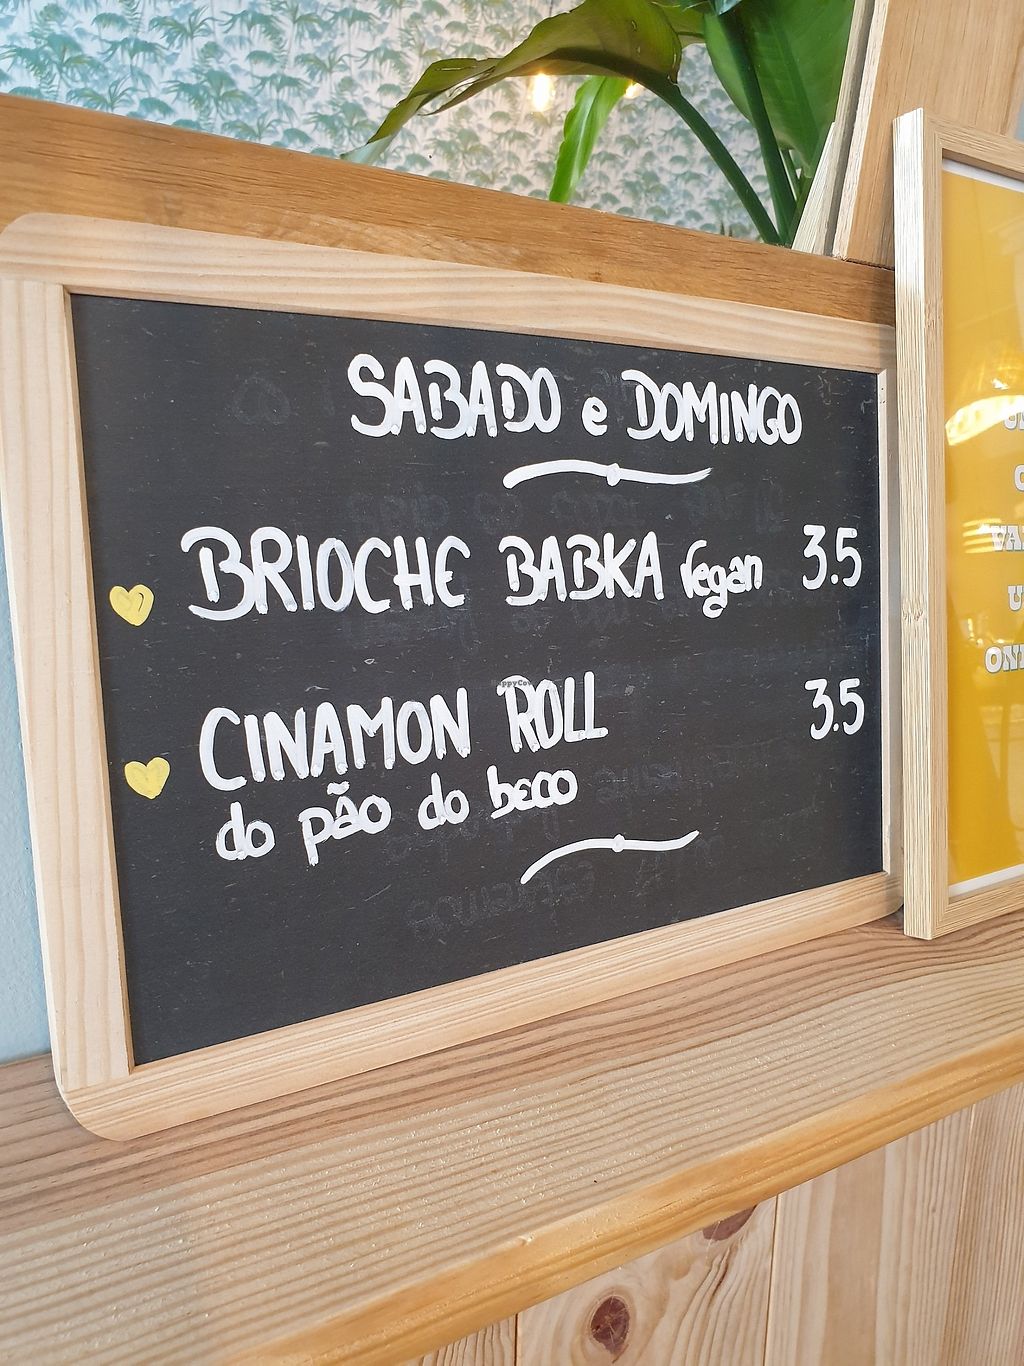 SABADO e DOMINGO
BRIOCHE BABKA Vegan 3.5
CINAMON ROLL 3.5
do pão do beco